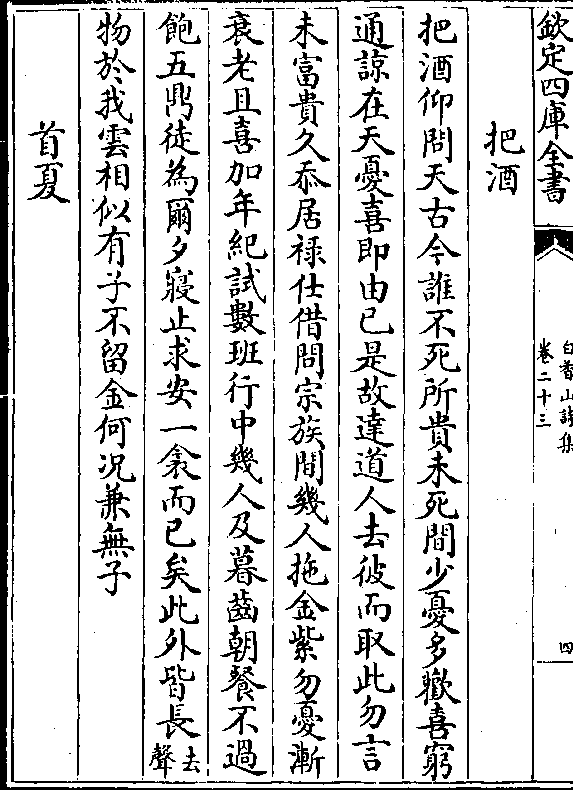 欽定四庫全書
白香山詩集
卷二十三
四
把酒
把酒仰問天古今誰不死所貴未死間少憂多歡喜窮
通諒在天憂喜即由已是故達道人去彼而取此勿言
未富貴久忝居禄仕借問宗族間幾人拖金紫勿憂漸
衰老且喜加年紀試數班行中幾人及暮齒朝餐不過
飽五鼎徒為爾夕寢止求安一衾而已矣此外皆長去聲
物於我雲相似有子不留金何况兼無子
首夏